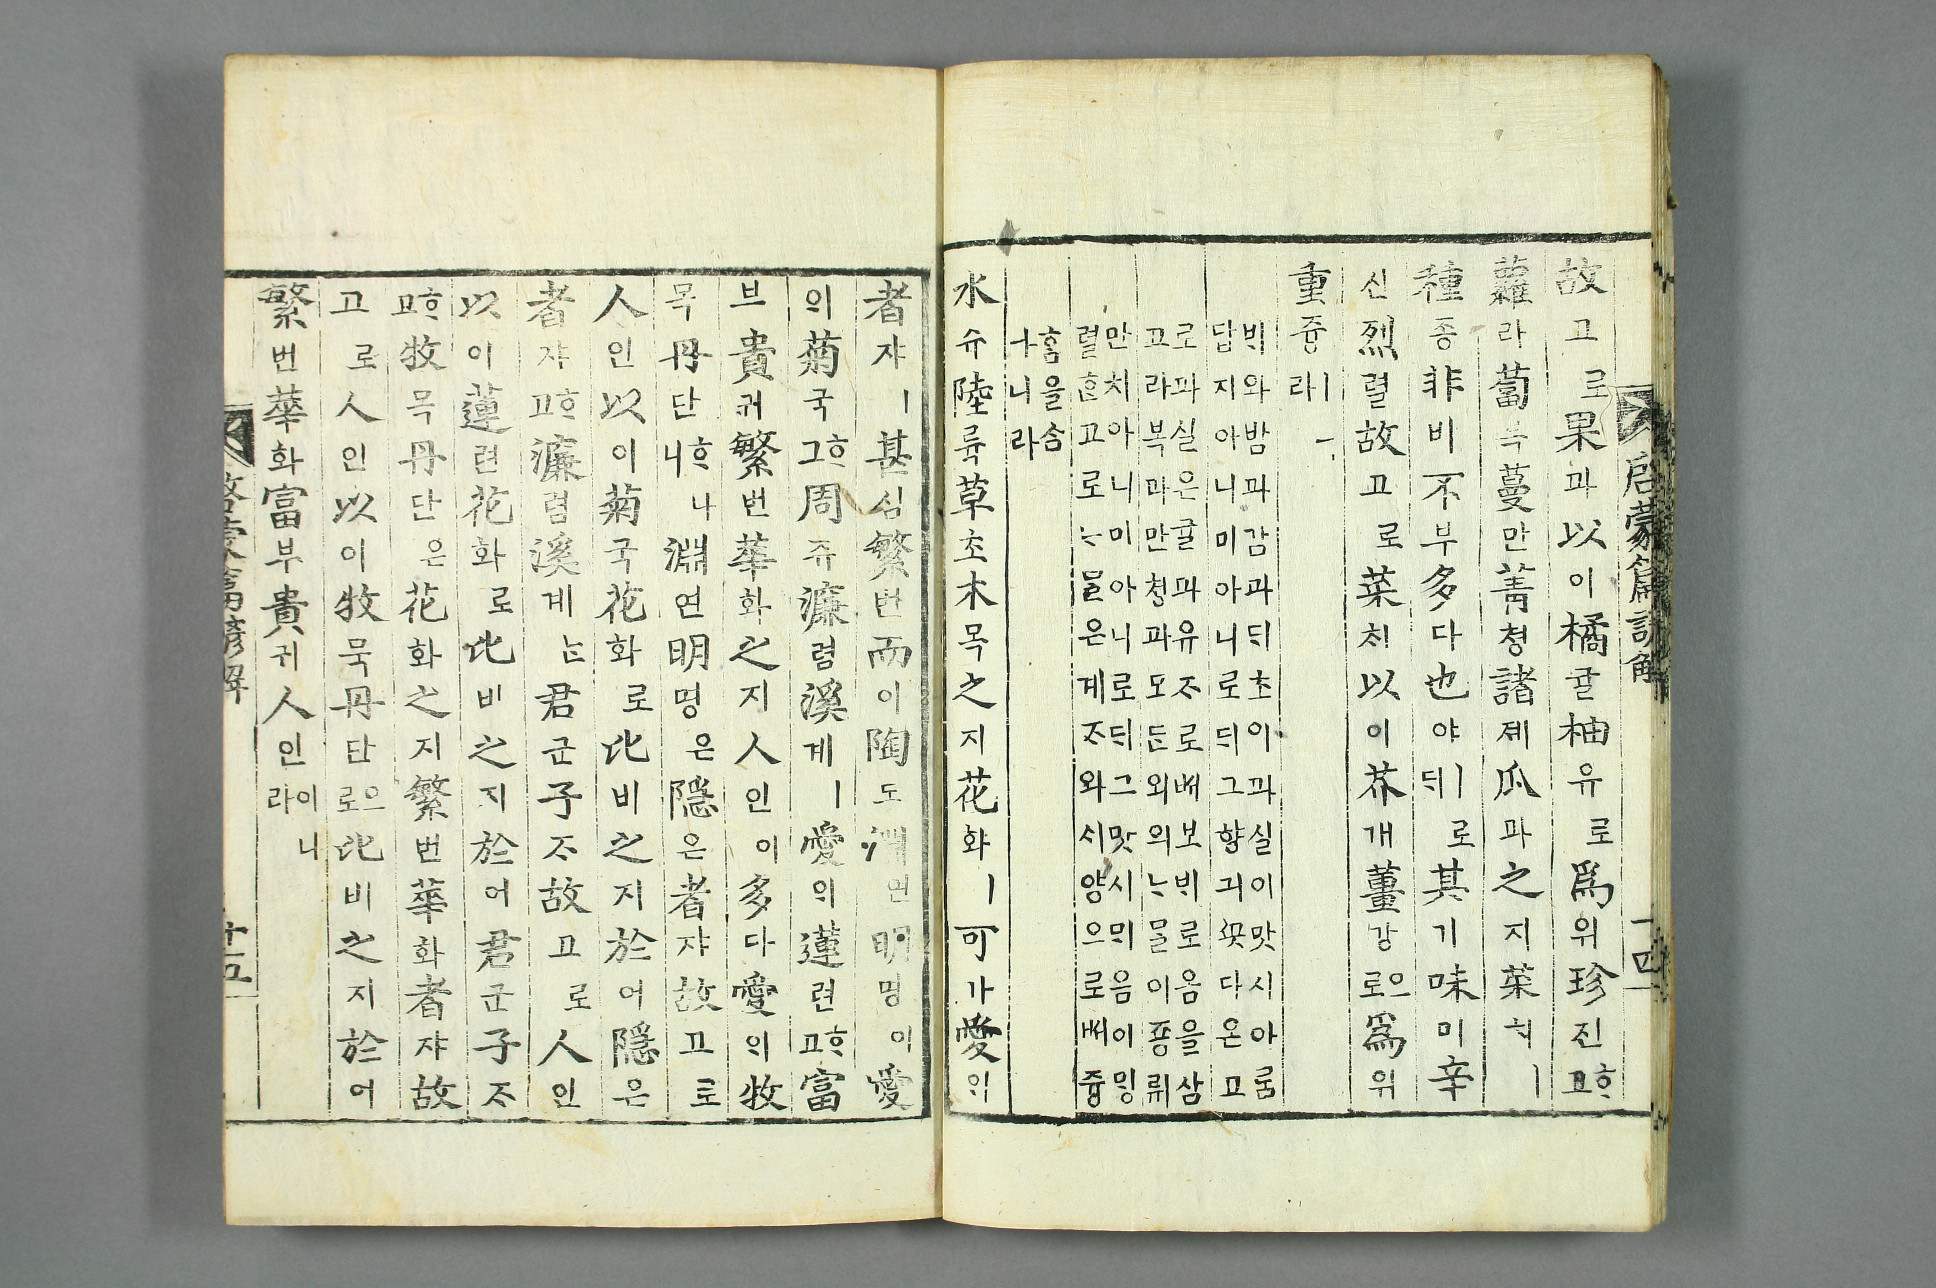 啓蒙篇諺解 十四
故고로果과以이橘귤柚유로爲위珍진ᄒᆞ고
蘿라葍복蔓만菁쳥諸졔瓜과之지菜ᄎᆡㅣ
種종非비不부多다也야ㅣ로ᄃᆡ其기味미辛
신烈렬故고로菜ᄎᆡ以이芥개薑강으로爲위
重즁ㅣ라
ᄇᆡ와밤과감과ᄃᆡ초이과실이맛시아룸
답지아니미아니로ᄃᆡ그향긔ᄭᅩᆺ다온고
로과실은귤과유ᄌᆞ로ᄡᅥ보ᄇᆡ로옴을삼
고라복과만쳥과모든외의ᄂᆞ물이죵뤼
만치아니미아니로ᄃᆡ그맛시ᄆᆡ음이ᄆᆡᆼ
렬ᄒᆞᆫ고로ᄂᆞ물은계ᄌᆞ와시양으로ᄡᅥ즁
홈을삼
ᄂᆞ니라
水슈陸륙草초木목之지花화ㅣ可가愛ᄋᆡ
者쟈ㅣ甚심繁번而이陶도淵연明명이愛
ᄋᆡ菊국ᄒᆞ고周쥬濂렴溪계ㅣ愛ᄋᆡ蓮련ᄒᆞ고富
부貴귀繁번華화之지人인이多다愛ᄋᆡ牧
목丹단ᄒᆞ니나淵연明명은隱은者쟈故고로
人인以이菊국花화로比비之지於어隱은
者쟈ᄒᆞ고濂렴溪계ᄂᆞᆫ君군子ᄌᆞ故고로人인
以이蓮련花화로比비之지於어君군子ᄌᆞ
ᄒᆞ고牧목丹단은花화之지繁번華화者쟈故
고로人인以이牧목丹단으로比비之지於어
繁번華화富부貴귀人인이니라
啓蒙篇諺解 十五